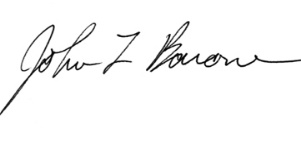 John L Barone